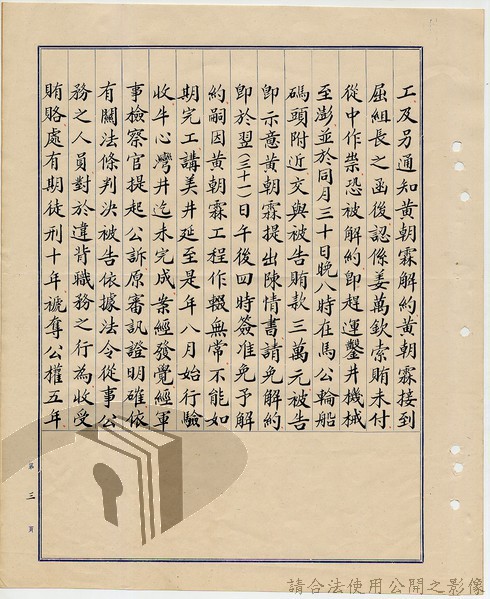 工及另通知黄朝霖解約黄朝霖接到
屈組長之函後認係姜萬欽索賄未付
從中作祟恐被解約即趕運鑿井機械
至澎並於同月三十日晚八時在馬公輪船
碼頭附近交與被告賄款三萬元被告
即示意黄朝霖提出陳情書請免解約
即於翌(三十一)日午後四時簽准免予解
約嗣因黄朝霖工程作輟無常不能如
期完工講美井延至是年八月始行驗
收牛心灣井迄未完成案經發覺經軍
事檢察官提起公訴原審訊證明確依
有關法條判決被告依據法令從事公
務之人員對於違背職務之行為收受
賄賂處有期徒刑十年褫奪公權五年
第三頁
請合法使用公開之影像